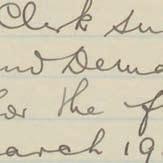 Clerk su
and Dema
for the f
March 19